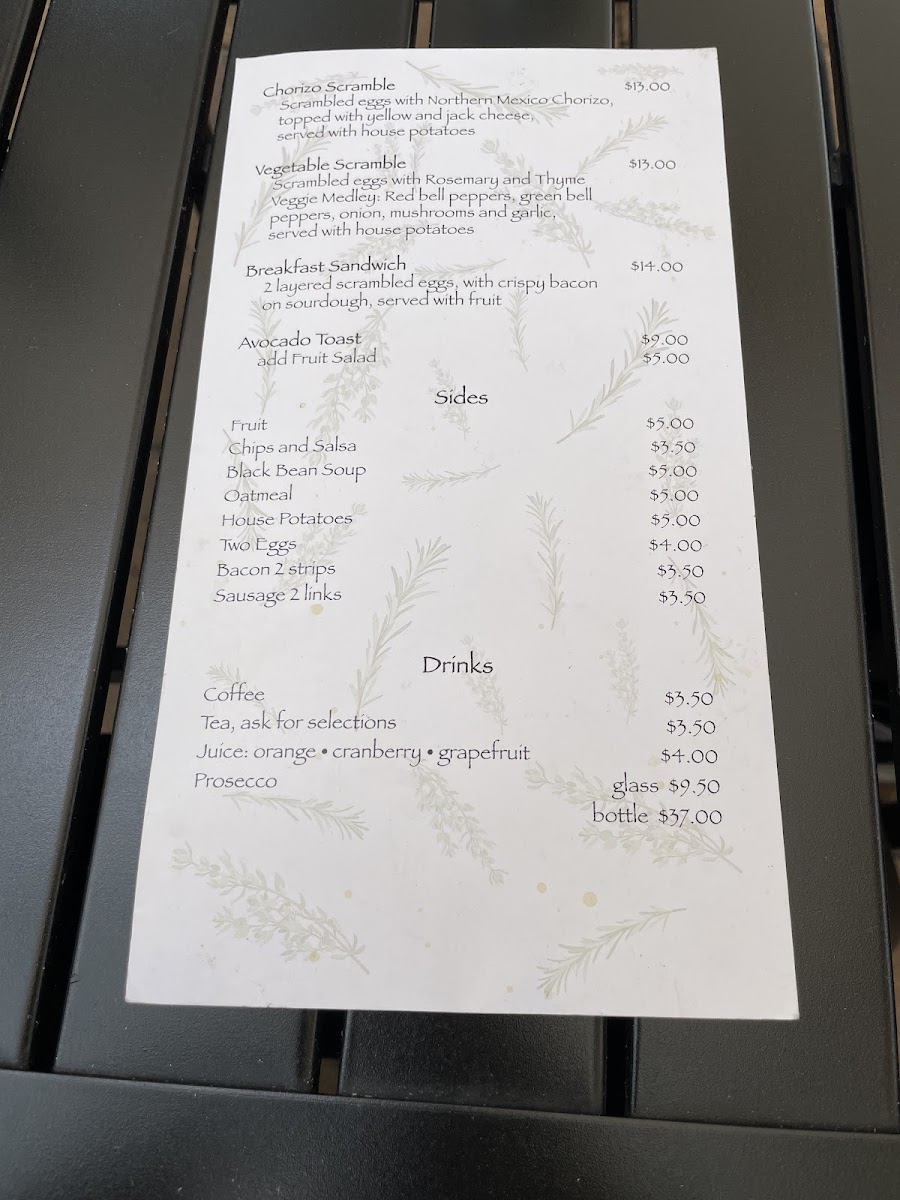 Chorizo Scramble $13.00
Scrambled eggs with Northern Mexico Chorizo,
topped with yellow and jack cheese,
served with house potatoes
Vegetable Scramble $13.00
Scrambled eggs with Rosemary and Thyme
Veggie Medley: Red bell peppers, green bell
peppers, onion, mushrooms and garlic,
served with house potatoes
Breakfast Sandwich $14.00
2 layered scrambled eggs, with crispy bacon
on sourdough, served with fruit
Avocado Toast $9.00
add Fruit Salad $5.00
Sides
Fruit $5.00
Chips and Salsa $3.50
Black Bean Soup $5.00
Oatmeal $5.00
House Potatoes $5.00
Two Eggs $4.00
Bacon 2 strips $3.50
Sausage 2 links $3.50
Drinks
Coffee $3.50
Tea, ask for selections $3.50
Juice: orange • cranberry • grapefruit $4.00
Prosecco glass $9.50
bottle $37.00